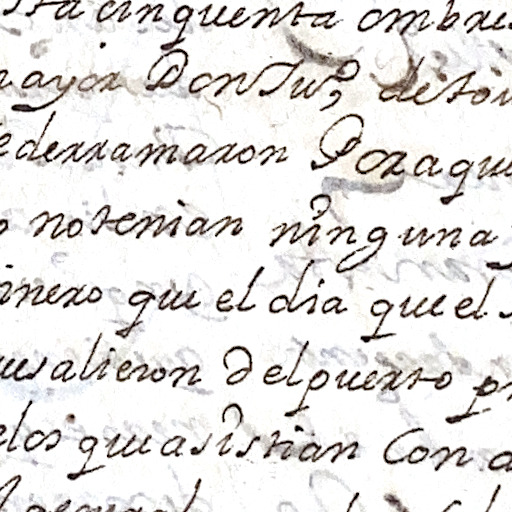 sta cinquenta ombres
mayor Don Juº, de tor
ederramaron Por aqu
o no tenian ninguna
inero que el dia que el
ue salieron del puerto p
elos que asistian Con a